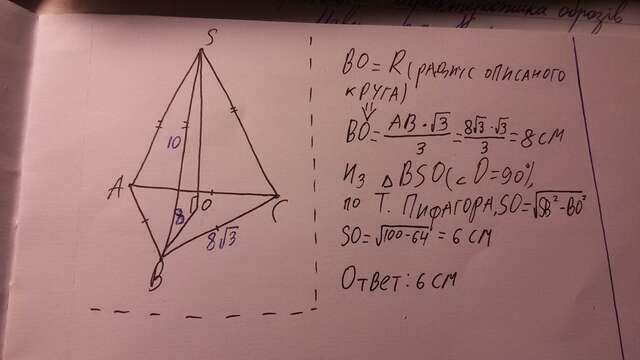 S
10
A
O
8
C
8√3
B
BO = R (радиус описаного
круга)
BO = AB·√3/3 = 8√3·√3/3 = 8 см
Из △BSO (∠O=90°),
по Т. Пифагора, SO=√SB²-BO²
SO=√100-64 = 6 см
Ответ: 6 см